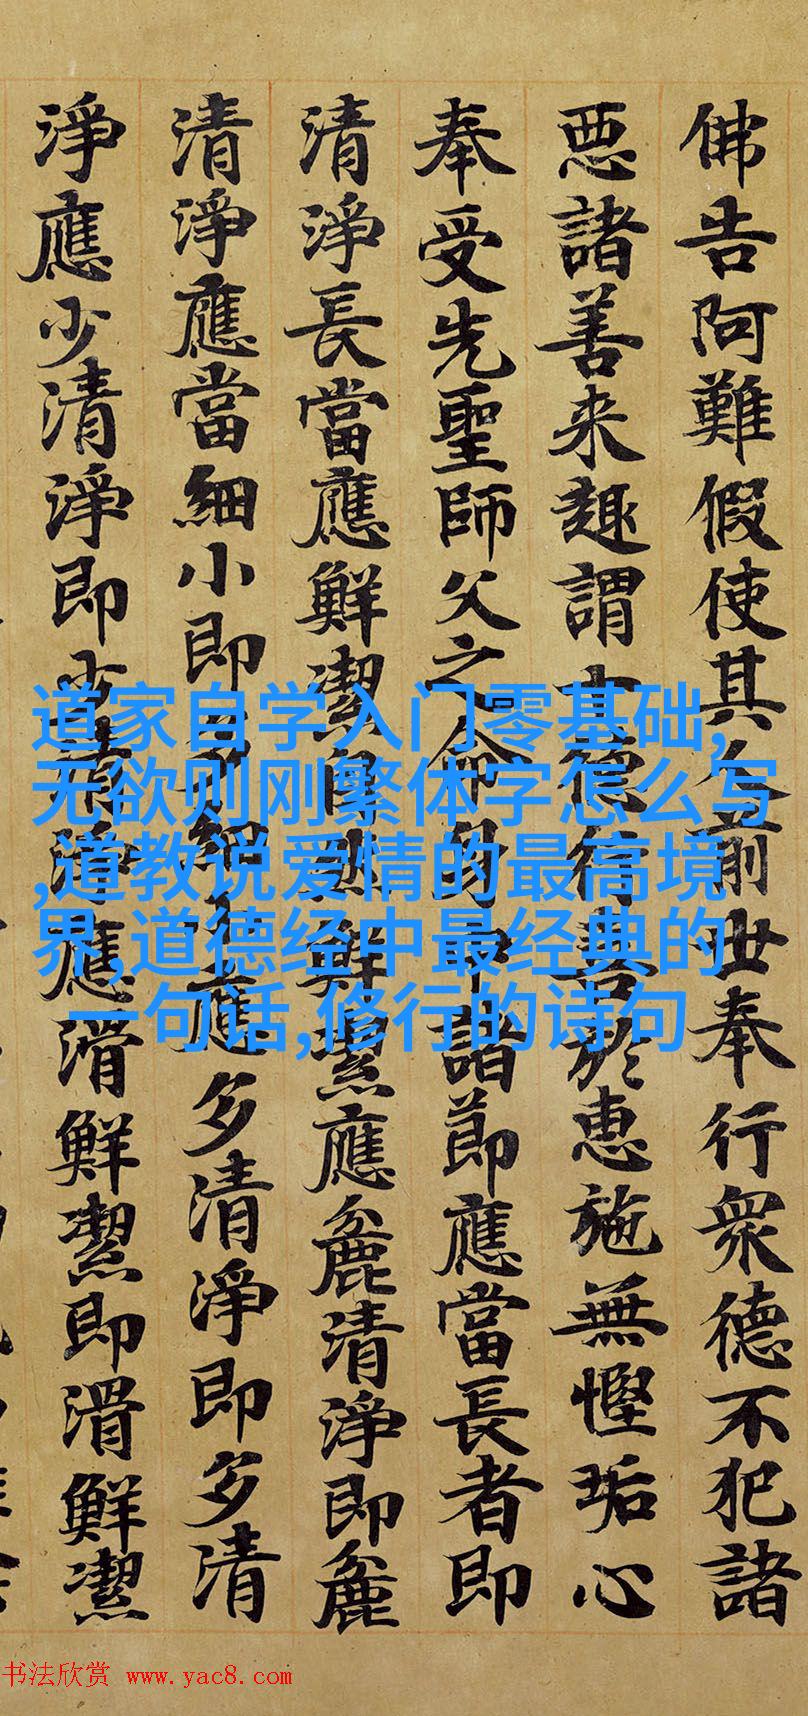 佛告阿難假使其人前世奉行衆德不犯諸
惡諸善来趣謂德行善於惠施無慳垢心
奉受先聖師父之命身中諸節應當長者即
清淨長當應鮮潔自然鮮潔應麁清淨即麁
清淨應當細小即細應多清淨即多清
淨應少清淨即少清淨應滑鮮潔即滑鮮潔
道家自学入门零基础,
无欲则刚繁体字怎么写
,道教说爱情的最高境
界,道德经中最经典的
一句话,修行的诗句
书法欣赏 www.yac8.com